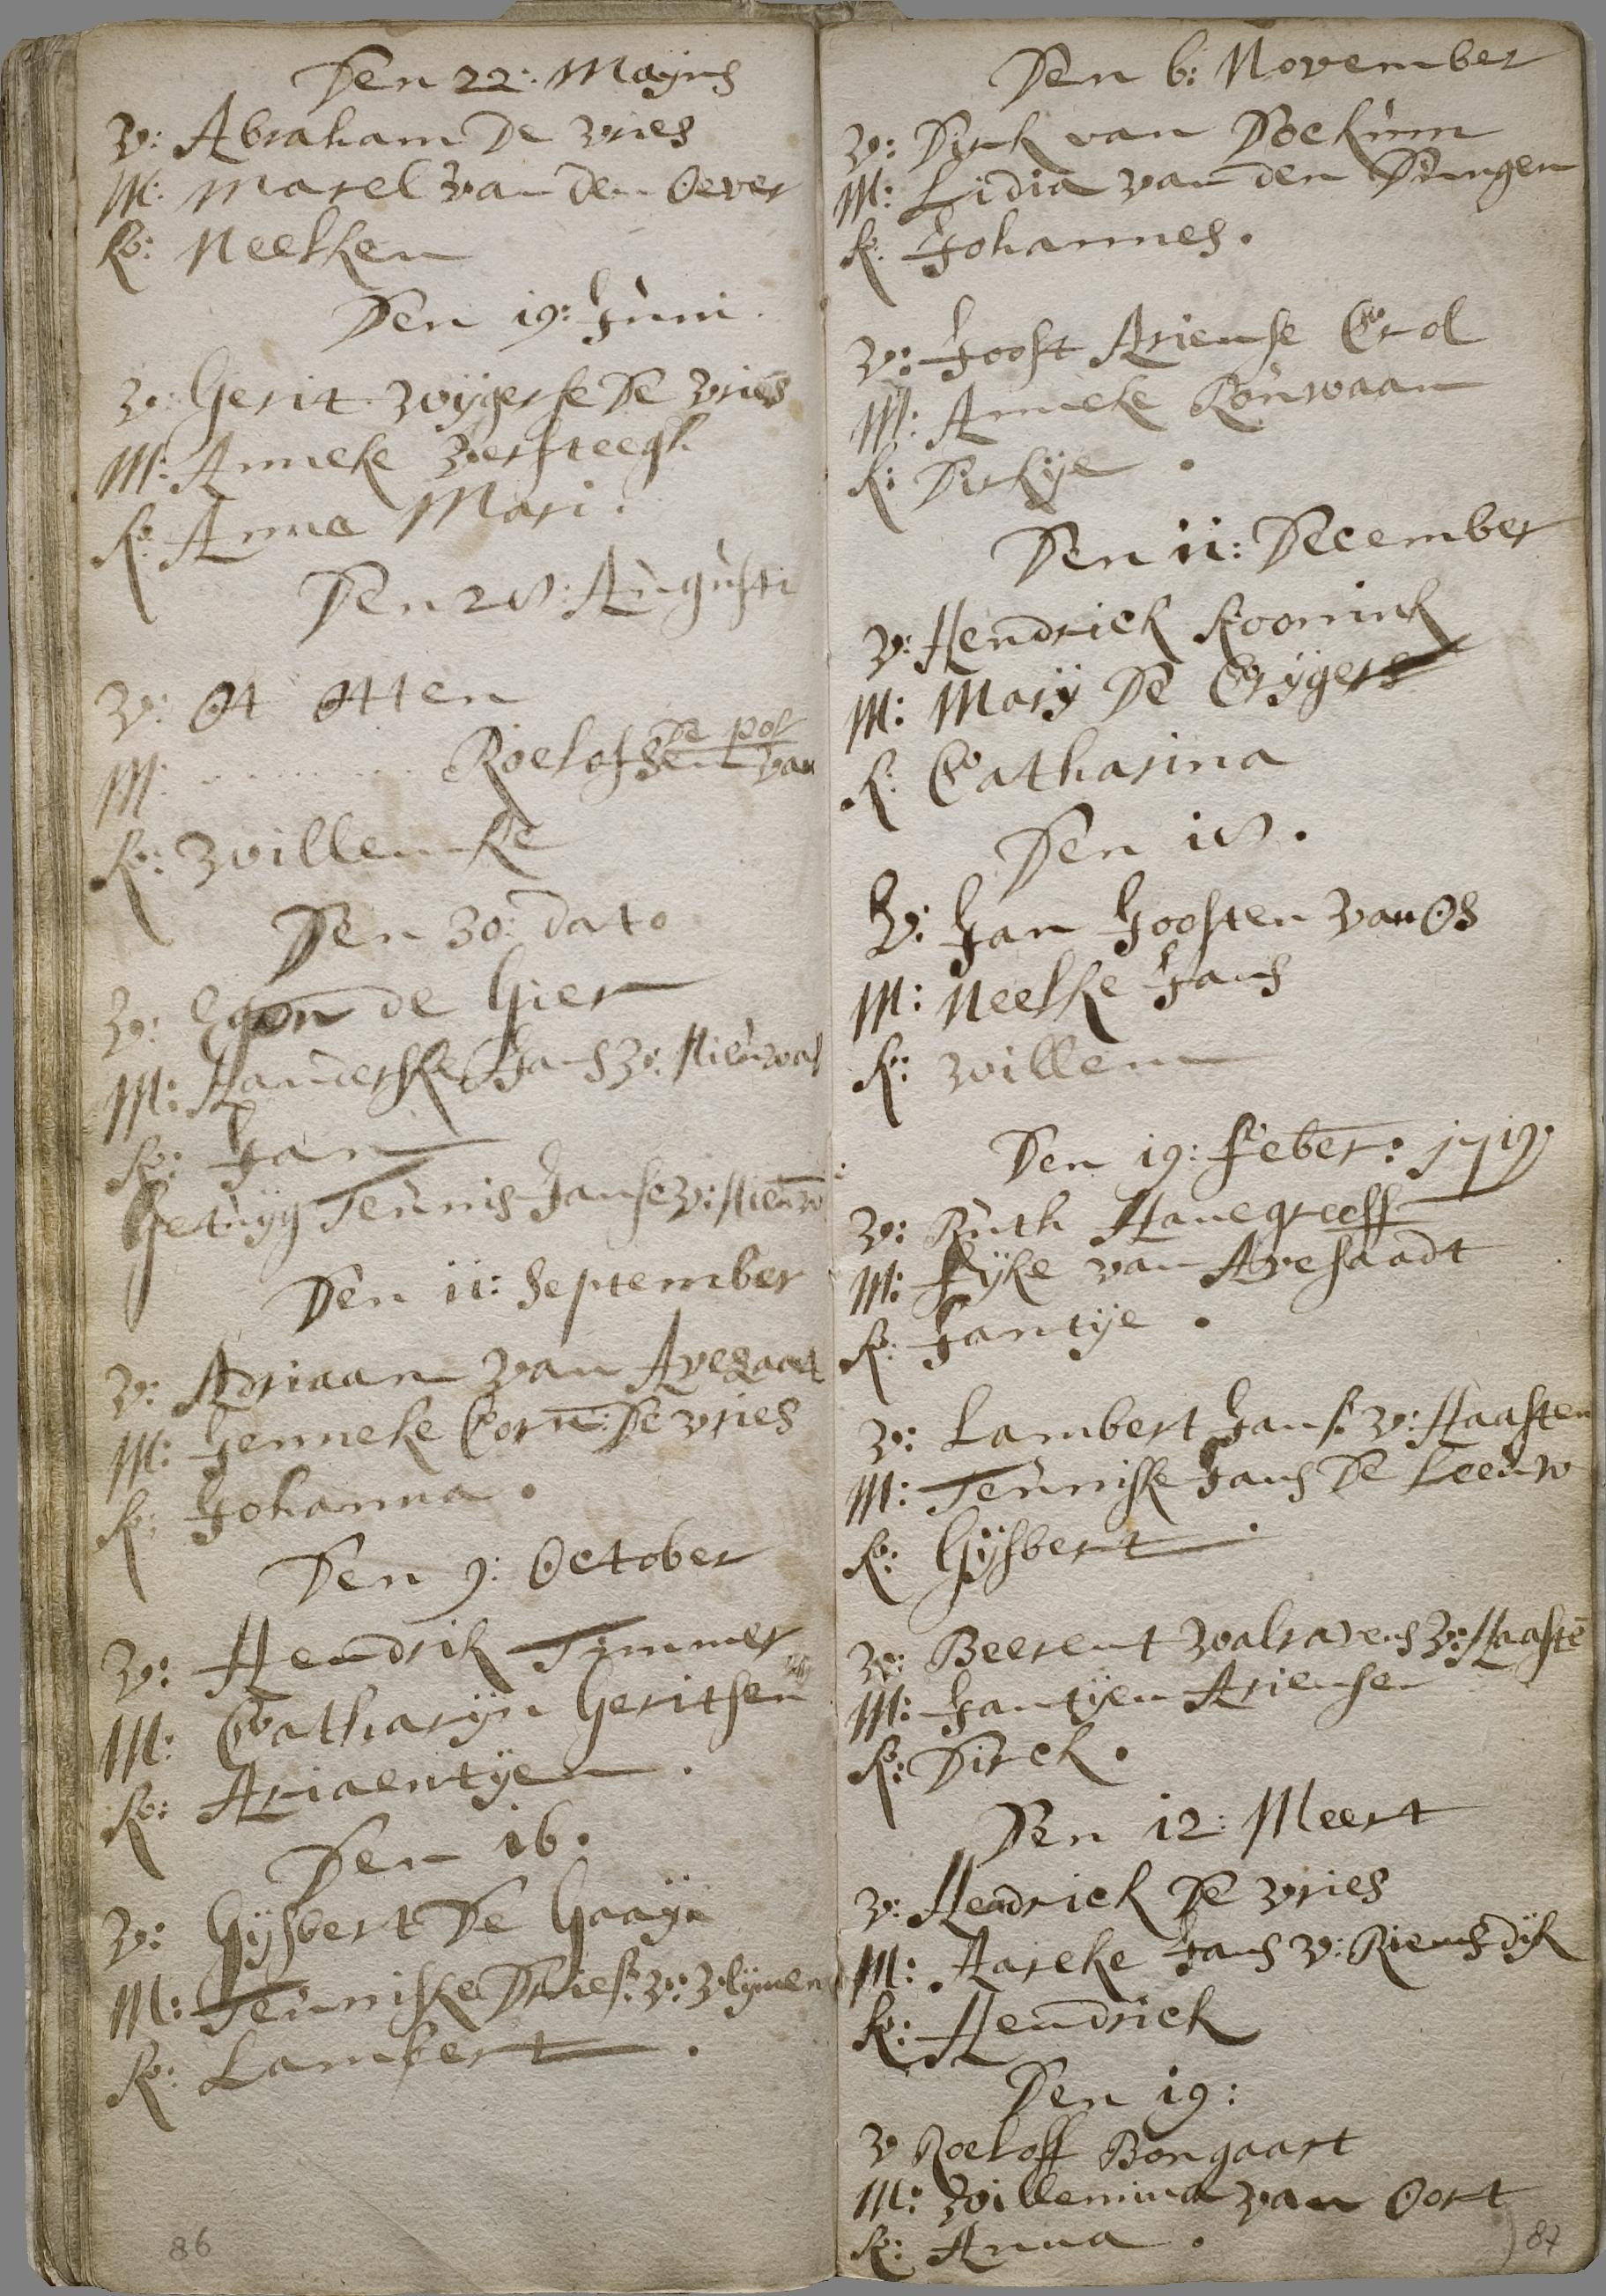 Den 22: Mayus
V: Abraham De Vries
M: Marel Van Den Oever
K: Neelken
Den 19: Juni.
V: Gerit Wijgerse De Vries
M: Anneke Versteegh
K: Anna Mari.
Den 28: Augusti
V: Ot Otten
De pol
M: ............ Roelofsen van
K: Willemke
Den 30: dato
V: Egon de Gier
M: Jans V: Nieuwal
K: Jan
Getuyg Teunis Janse V: Nieuw
Den 11: September
V: Adriaan Van Avezaat
M: Jenneke Corn: De Vries
K: Johanna.
Den 9: October
V: Hendrik Timmer
M: Catharijn Geritsen
K: Ariaentije.
Den 16.
V: Gijsbert De Gaaij
M: Teuniske Dries: V: Vlijmen
K: Lambert.
86
Den 6: November
V: Dirk van Doekum
M: Lidia van den Dungen
K: Johannes.
V: Joost Ariense Crol
M: Anneke Ronwaan
K: Dirkije.
Den 11: December
V: Hendrick Koonink
M: Marij De Crijger
K: Catharina
Den 18.
V: Jan Joosten Van Os
M: Neelke Jans
K: Willem
Den 19: Feber: 1719
V: Ruth Hanegreeff
M: Fijke van Avesaadt
K: Jantije.
V: Lambert Jans: V: Haaften
M: Teuniske Jans De Leeuw
K: Gijsbert.
V: Beerent Walravens V: Haafte
M: Jantijen Ariensen
K: Dirck.
Den 12: Meert
V: Hendrick De Vries
M: Aareke Jans V: Riemsdijk
K: Hendrick
Den 19:
V Roeloff Bongaart
M: Willemina Van Oort
K: Anna.
87